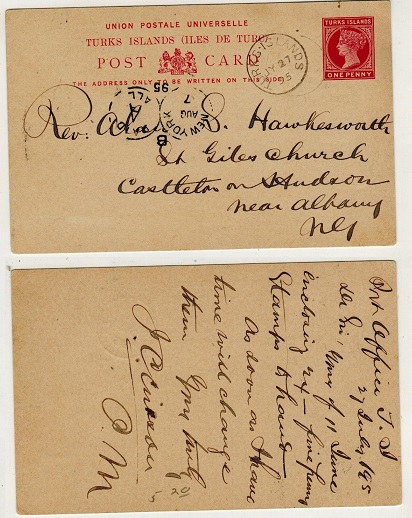 UNION POSTALE UNIVERSELLE
TURKS ISLANDS (ILES DE TURC
POST CARD
THE ADDRESS ONLY TO BE WRITTEN ON THIS SIDE
TURKS ISLANDS
ONE PENNY
ISLANDS
JY 27
95
NEW YORK
AUG
7
95
B
ALL
Rev: Hawkesworth
St Giles Church
Castleton on Hudson
near Albany
NY
Post Office T. I
27 July 1895
Dr Sir, yours of 11 June
enclosing penny
Stamps to hand
As soon as I have
time will change
them Yours truly
J C
P. M
20
5